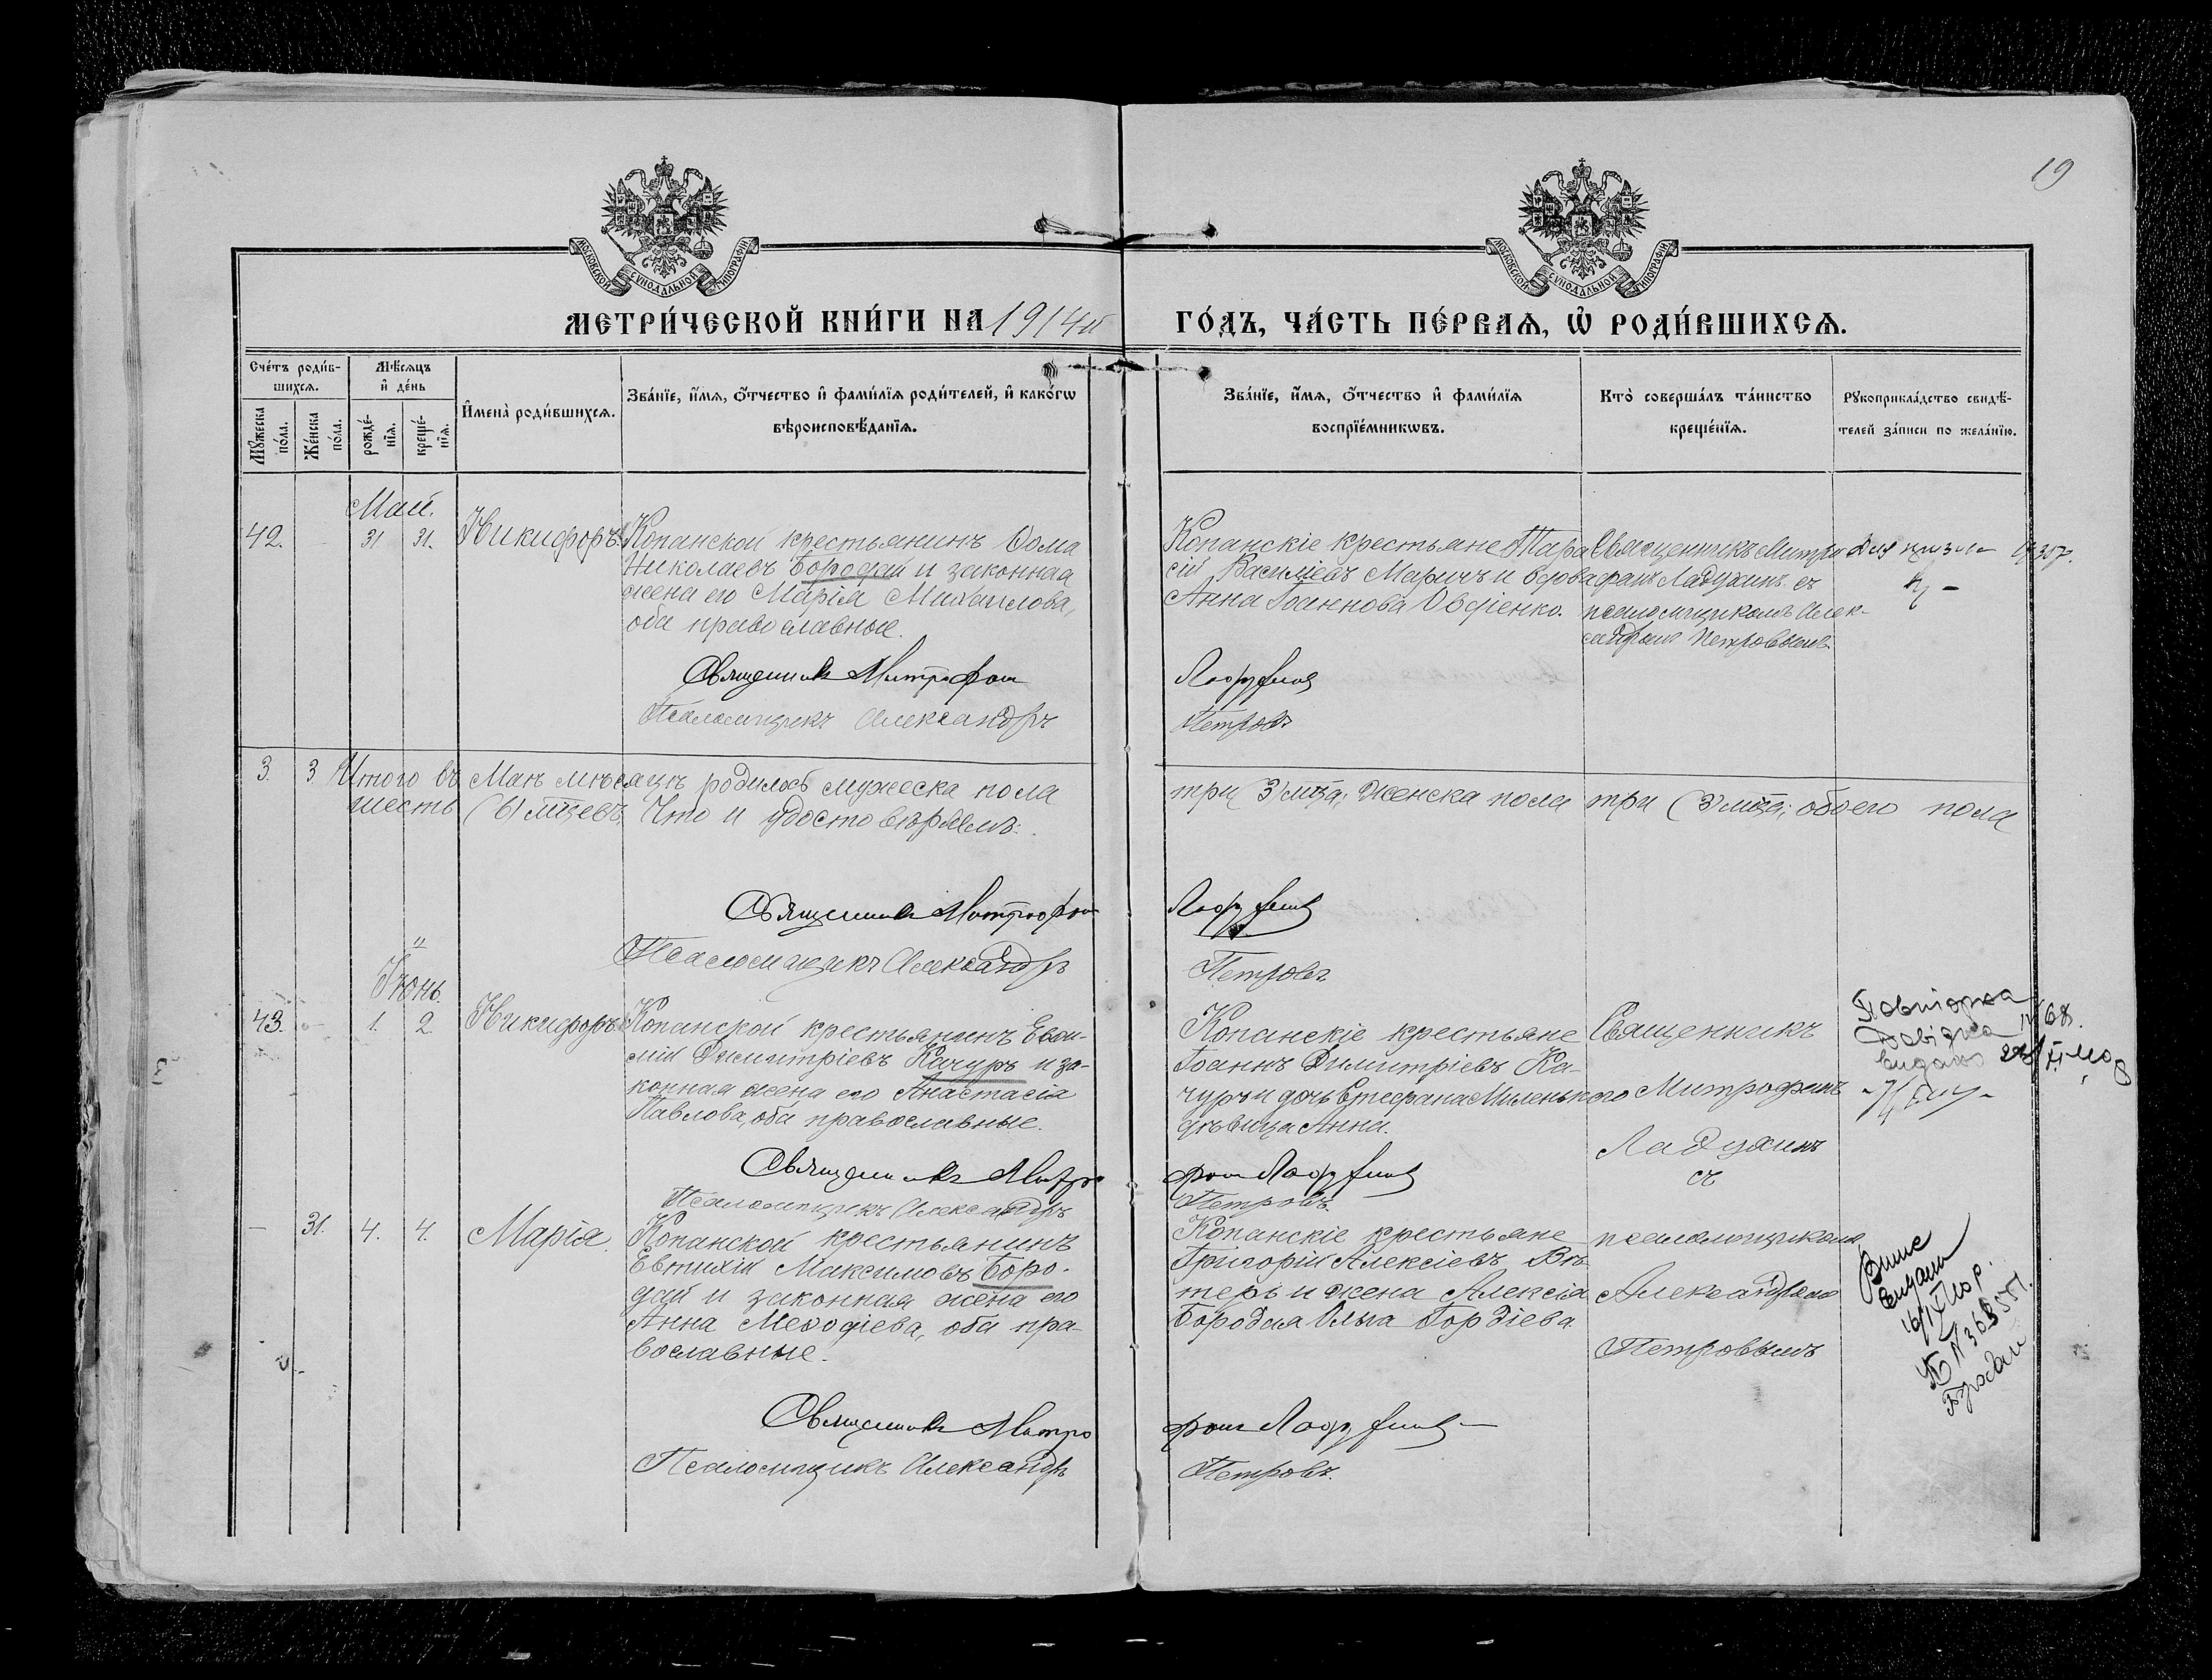 19
МОСКОВСКОЙ СУНОДАЛЬНОЙ ТИПОГРАФІИ
МОСКОВСКОЙ СУНОДАЛЬНОЙ ТИПОГРАФІИ
МЕТРИ́ЧЕСКОЙ КНИ́ГИ НА 1914й
ГО́ДЪ, ЧА́СТЬ ПЕ́РВАѦ, Ѡ҆ РОДИ́ВШИХСѦ.
Сче́тъ роди́в-
шихсѧ.
Мꙋжеска по́ла.
Же́нска по́ла.
Мѣ́сяцъ
и҆ де́нь
рожде́-
нїѧ.
креще́-
нїѧ.
И҆мена̀ роди́вшихсѧ.
Зва́нїе, и҆́мѧ, ѻ҆́тчество и҆ фами́лїѧ роди́телей, и҆ како́гѡ
вѣроисповѣ́данїѧ.
Зва́нїе, и҆́мѧ, ѻ҆́тчество и҆ фами́лїѧ
воспрїе́мникѡвъ.
Кто̀ соверша́лъ та́инство
креще́нїѧ.
Рꙋкоприкла́дство свидѣ́-
телей за́писи по жела́нїю.
Май.
42.
31
31.
Никифоръ.
Копанской крестьянинъ Ѳома
Николаевъ Бородай и законная
жена его Марія Михаилова,
оба православные.
Священникъ Митрофан
Псаломщикъ Александръ
Копанскіе крестьяне Тара
сій Василіевъ Маричъ и вдова
Анна Іоаннова Овдіенко.
Ладухинъ
Петровъ
Священникъ Митро
фанъ Ладухинъ съ
псаломщикомъ Алек-
сандромъ Петровымъ
3.
3
Итого въ Маѣ мѣсяцѣ родилось мужеска пола
три (3) мца; Женска пола три (3) мца; обоего пола
шесть (6) мцевъ. Что и удостовѣряемъ:
Священникъ Митрофан
Ладухинъ
Псаломщикъ Александръ
Петровъ
Іюнь.
43.
1.
2.
Никифоръ
Копанской крестьянинъ Евѳи-
мій Димитріевъ Качуръ и за-
конная жена его Анастасія
Павлова, оба православные.
Священникъ Митро
Псаломщикъ Александръ
Копанскіе крестьяне
Іоаннъ Димитріевъ Ка-
чуръ и дочь Стефана Миленького
дѣвица Анна.
фан Ладухинъ
Петровъ.
Священникъ
Митрофанъ
Ладухинъ
съ
псаломщикомъ
Александромъ
Петровымъ
Повторна
Довідка
видана
—
31.
4.
4.
Марія.
Копанской крестьянинъ
Евтихій Максимовъ Боро-
дай и законная жена его
Анна Меѳодіева, оба пра-
вославные.
Священникъ Митро
Псаломщикъ Александръ
Копанскіе крестьяне
Григорій Алексіевъ Вѣ-
теръ и жена Алексія
Бородая Ольга Гордіева.
фан Ладухинъ
Петровъ.